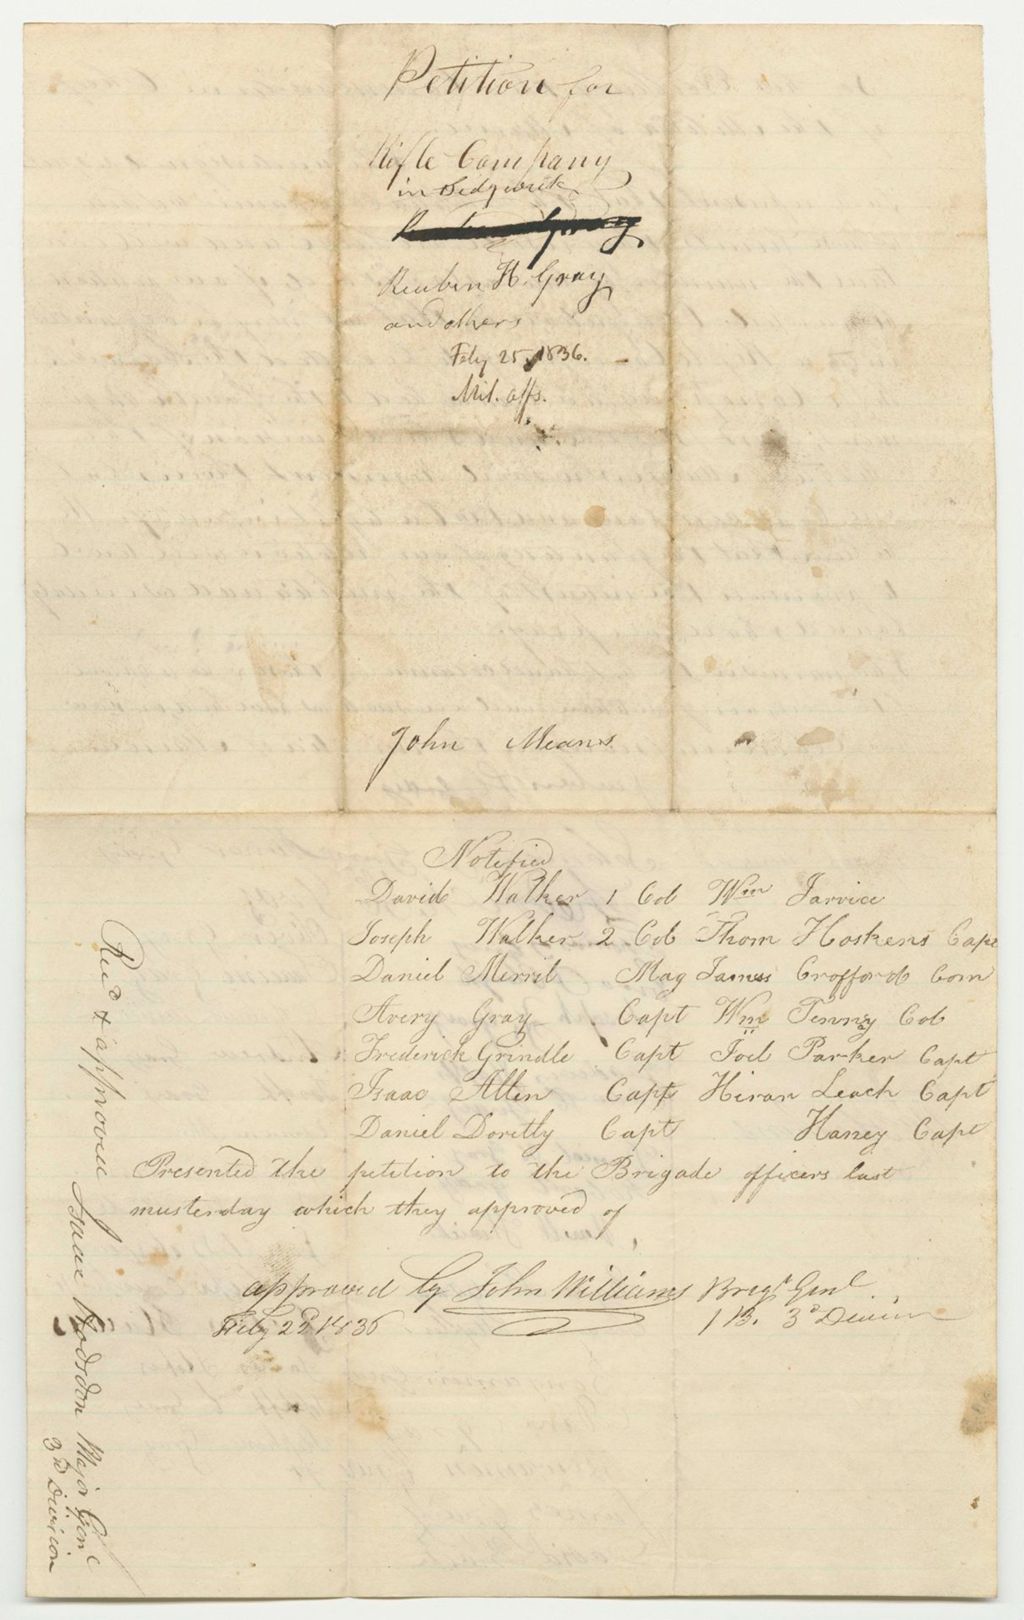 Petition for
Rifle Company
in Sedgwick
Reuben H. Gray
and others
Feby 25, 1836.
Mil. affs.
John Means
Notified
David Walker 1 Col Wm Jarvice
Joseph Walker 2 Col Thom Hoskens Capt
Daniel Merril Mag James Crofford Com
Avery Gray Capt Wm Tenny Col
Frederick Grindle Capt Joel Parker Capt
Isaac Allen Capt Hiran Leach Capt
Daniel Doretly Capt Haney Capt
Presented the petition to the Brigade officers last
musterday which they approved of
approved by John Williams Brigr Genl
Feby 22d 1836 1 B. 3d Division
Recd & approved Isaac Hodsdon Major Genl
3rd Division